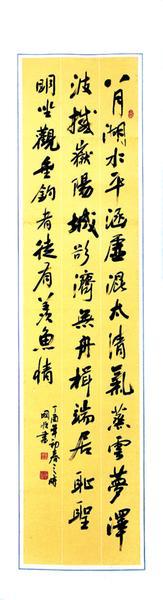 八月湖水平涵虚混太清氣蒸雲夢澤
波撼嶽陽城欲濟無舟楫端居恥聖
明坐觀垂釣者徒有羡魚情
丁酉年初春之時